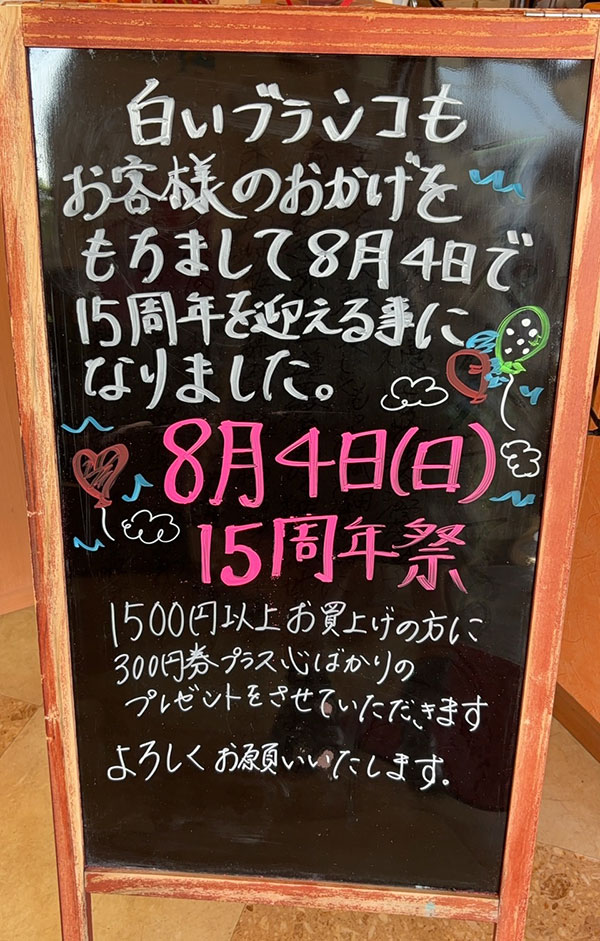 白いブランコも
お客様のおかげを
もちまして8月4日で
15周年を迎える事に
なりました。
8月4日(日)
15周年祭
1500円以上お買上げの方に
300円券プラス心ばかりの
プレゼントをさせていただきます
よろしくお願いいたします。